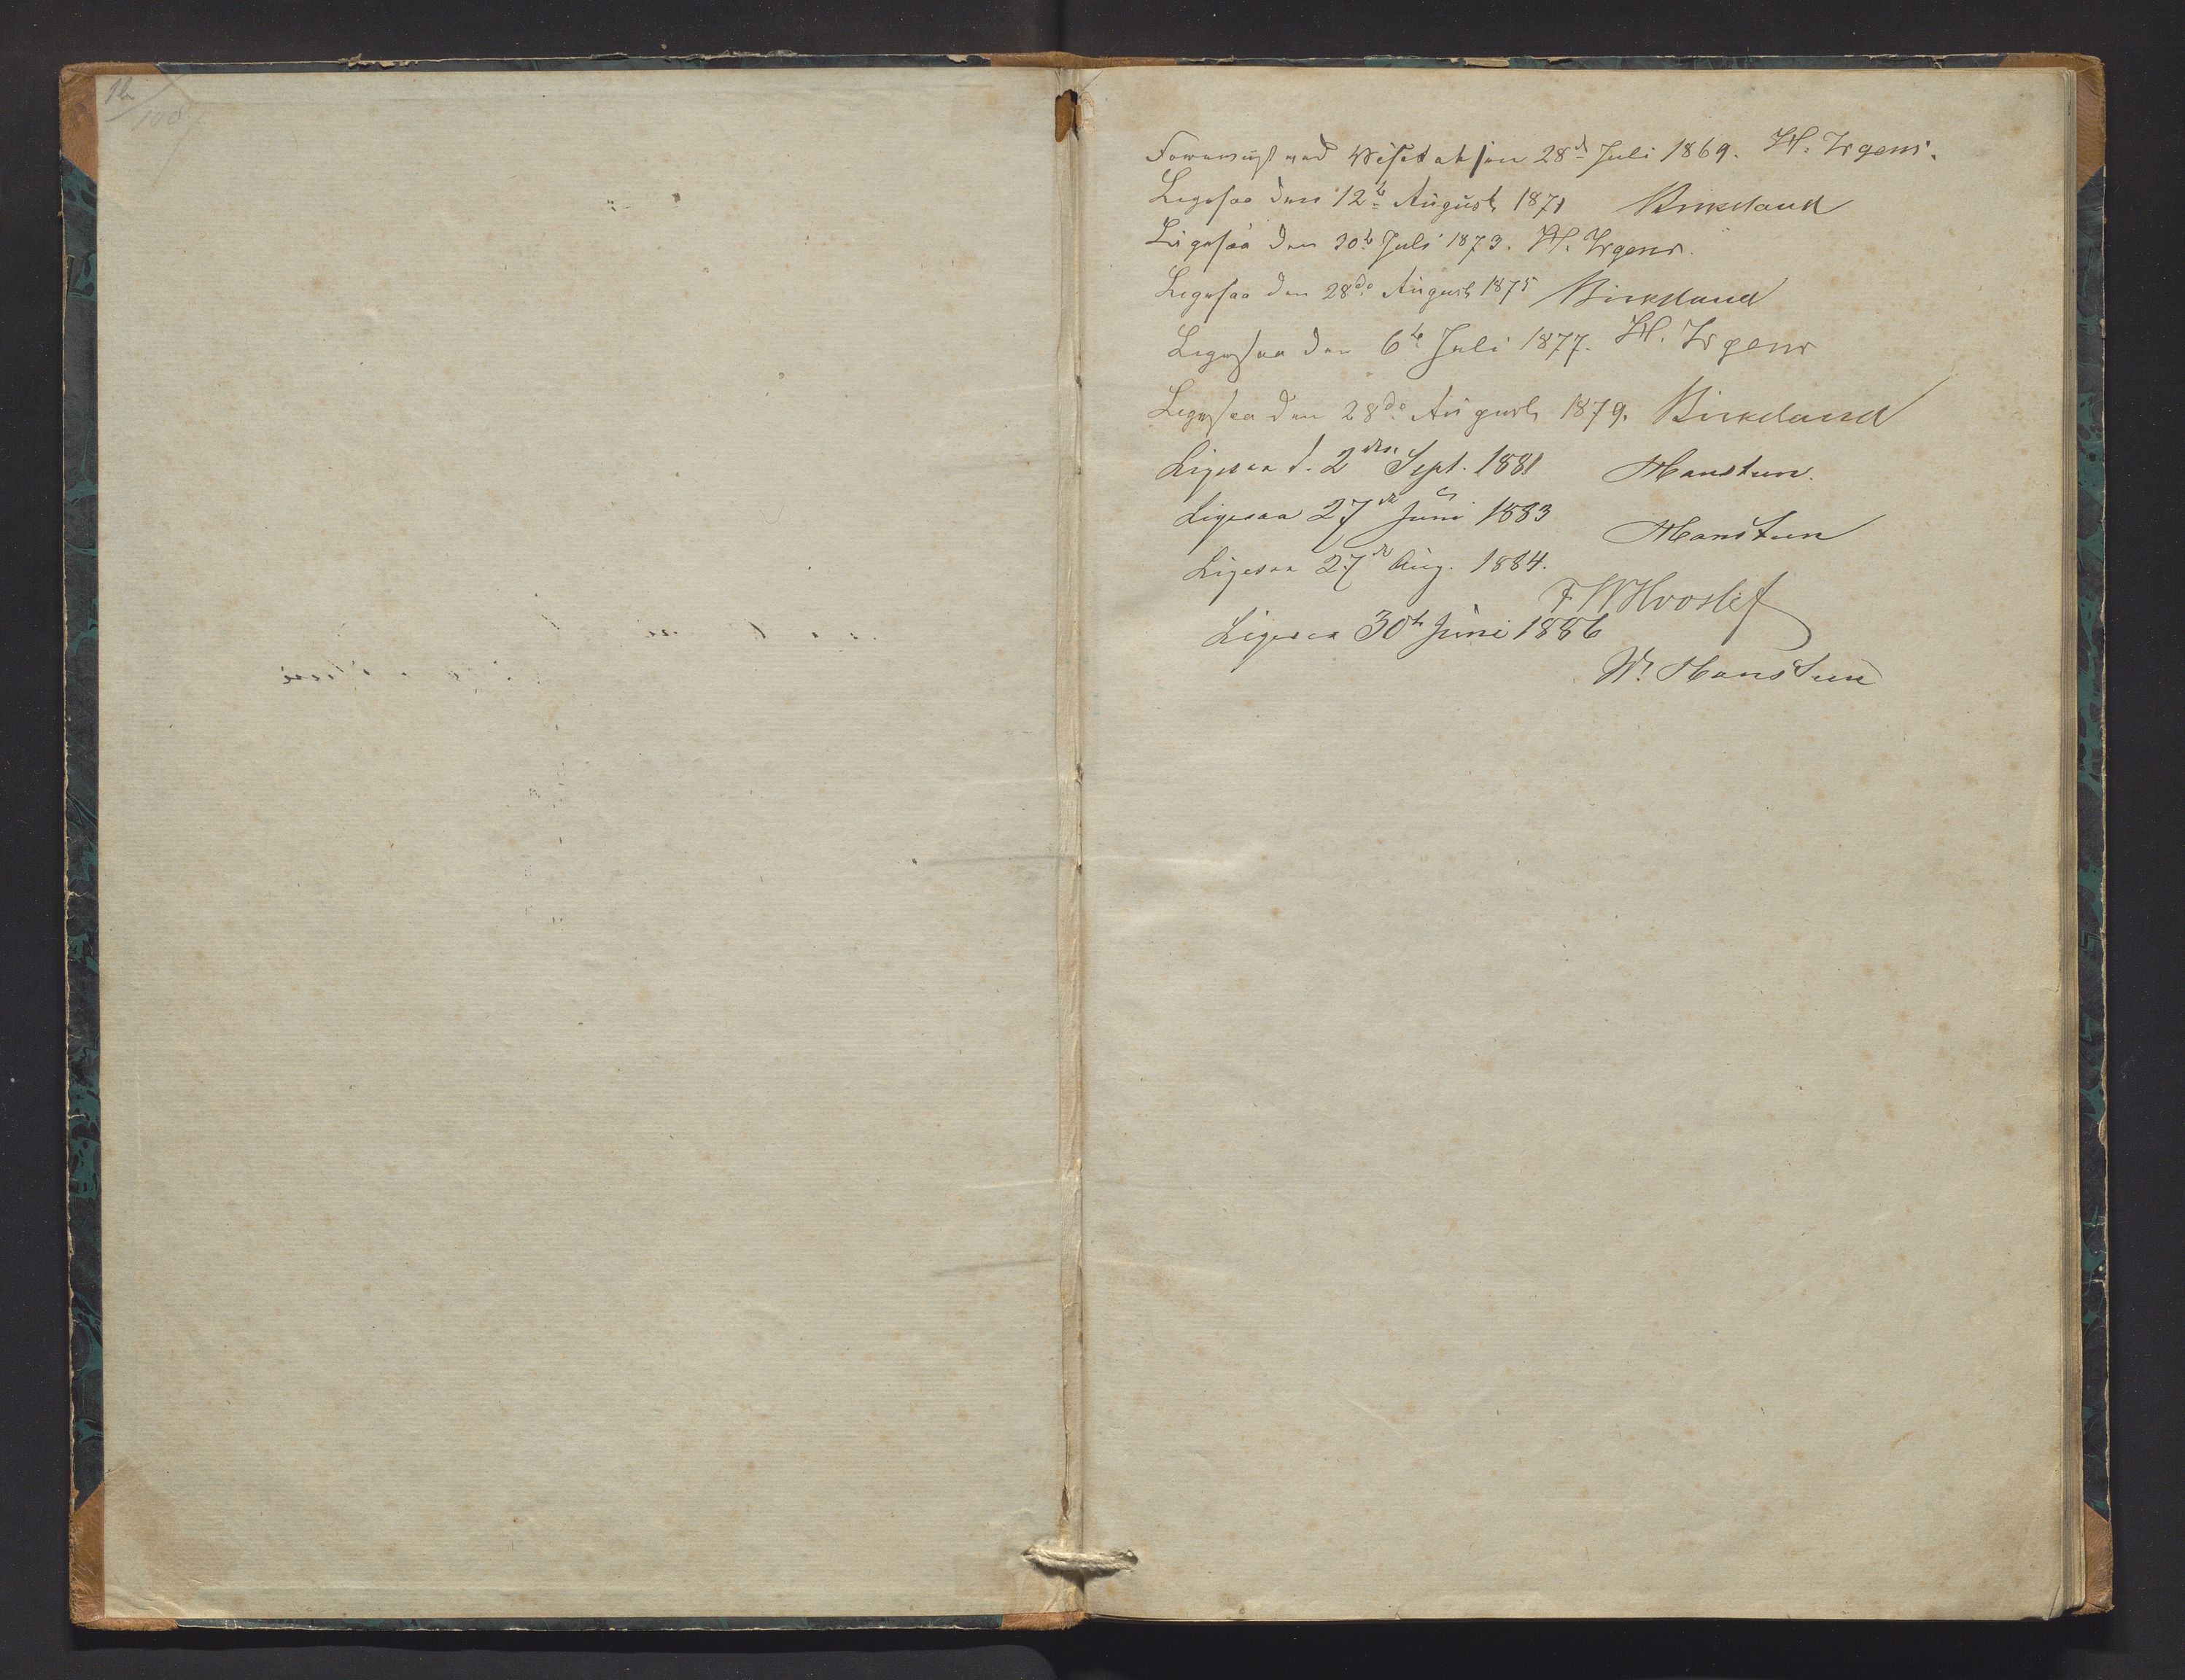 Foreviist ved Visitatsen 28d Juli 1869. H. Irgens.
Ligesaa den 12te August 1871 Birkeland
Ligesaa den 30te Juli 1873. H. Irgens.
Ligesaa den 28de August 1875 Birkeland
Ligesaa den 6te Juli 1877. H. Irgens
Ligesaa den 28de August 1879. Birkeland
Ligesaa d. 2den Sept. 1881 Hansteen.
Ligesaa 27de Juni 1883 Hansteen
Ligesaa 27de Aug. 1884.
F W Hvoslef
Ligesaa 30te Juni 1886
W. Hansteen